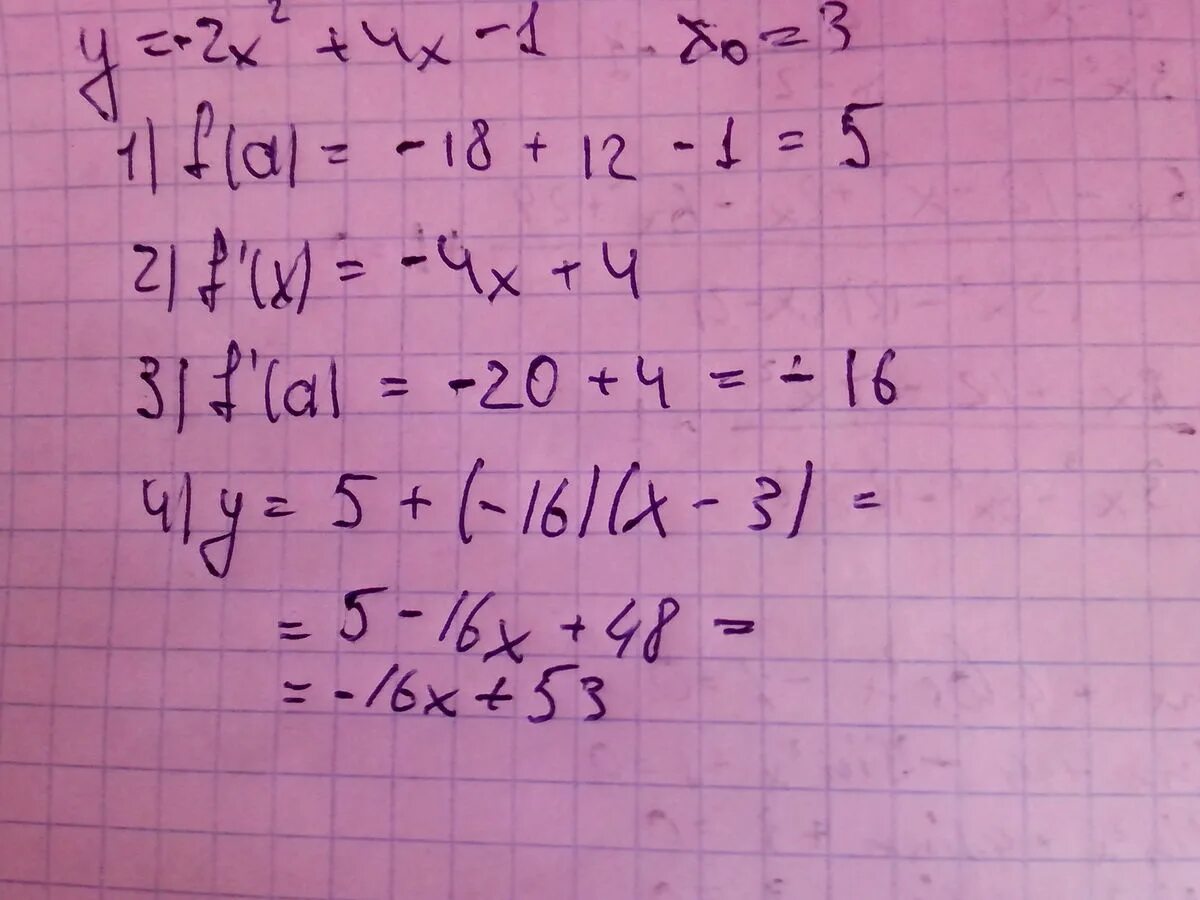 y = -2x² + 4x - 1   x₀ = 3
1) f(a) = -18 + 12 - 1 = 5
2) f'(x) = -4x + 4
3) f'(a) = -20 + 4 = -16
4) y = 5 + (-16)(x - 3) =
= 5 - 16x + 48 =
= -16x + 53